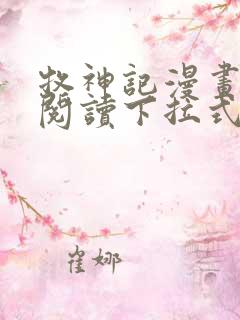 牧神記漫畫
閱讀下拉式
崔娜